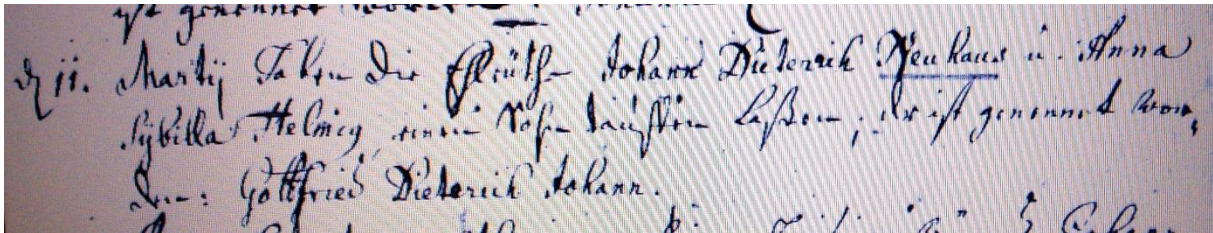 ist genennet worden:
d 11. Martij Haben die Ehleüthe Johann Dieterich Neuhaus u. Anna
Sÿbilla Helmig einen Sohn tauffen laßen, der ist genennet wor,
den: Gottfried Dieterich Johann.